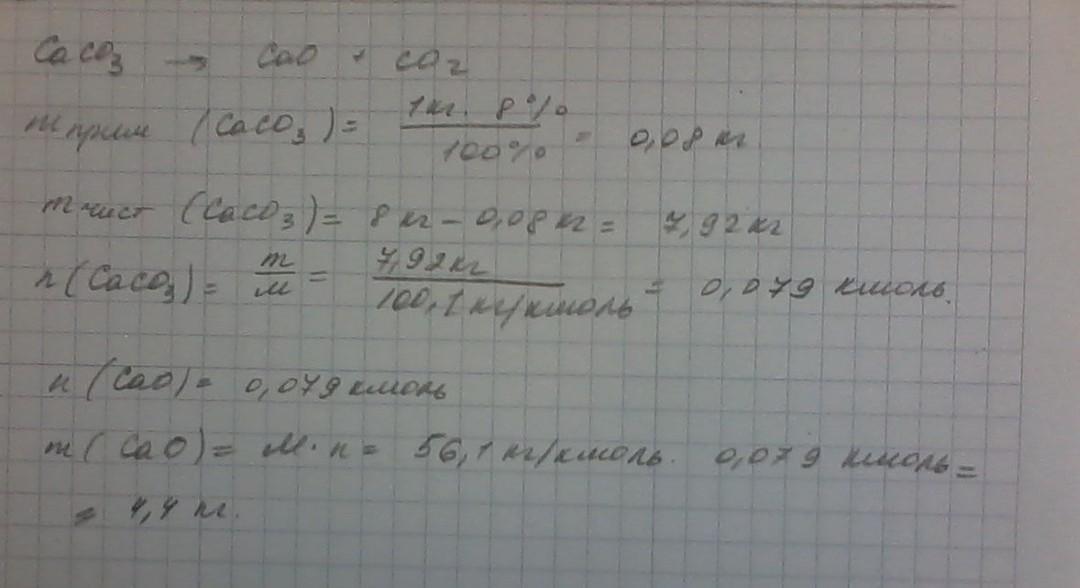 CaCO3 → CaO + CO2
m прим (CaCO3) = 1кг. 8% / 100% = 0,08 кг
m чист (CaCO3) = 8 кг – 0,08 кг = 7,92 кг
n (CaCO3) = m/M = 7,92 кг / 100,1 кг/кмоль = 0,079 кмоль.
n (CaO) = 0,079 кмоль
m ( CaO) = M · n = 56,1 кг/кмоль. 0,079 кмоль =
= 4,4 кг.